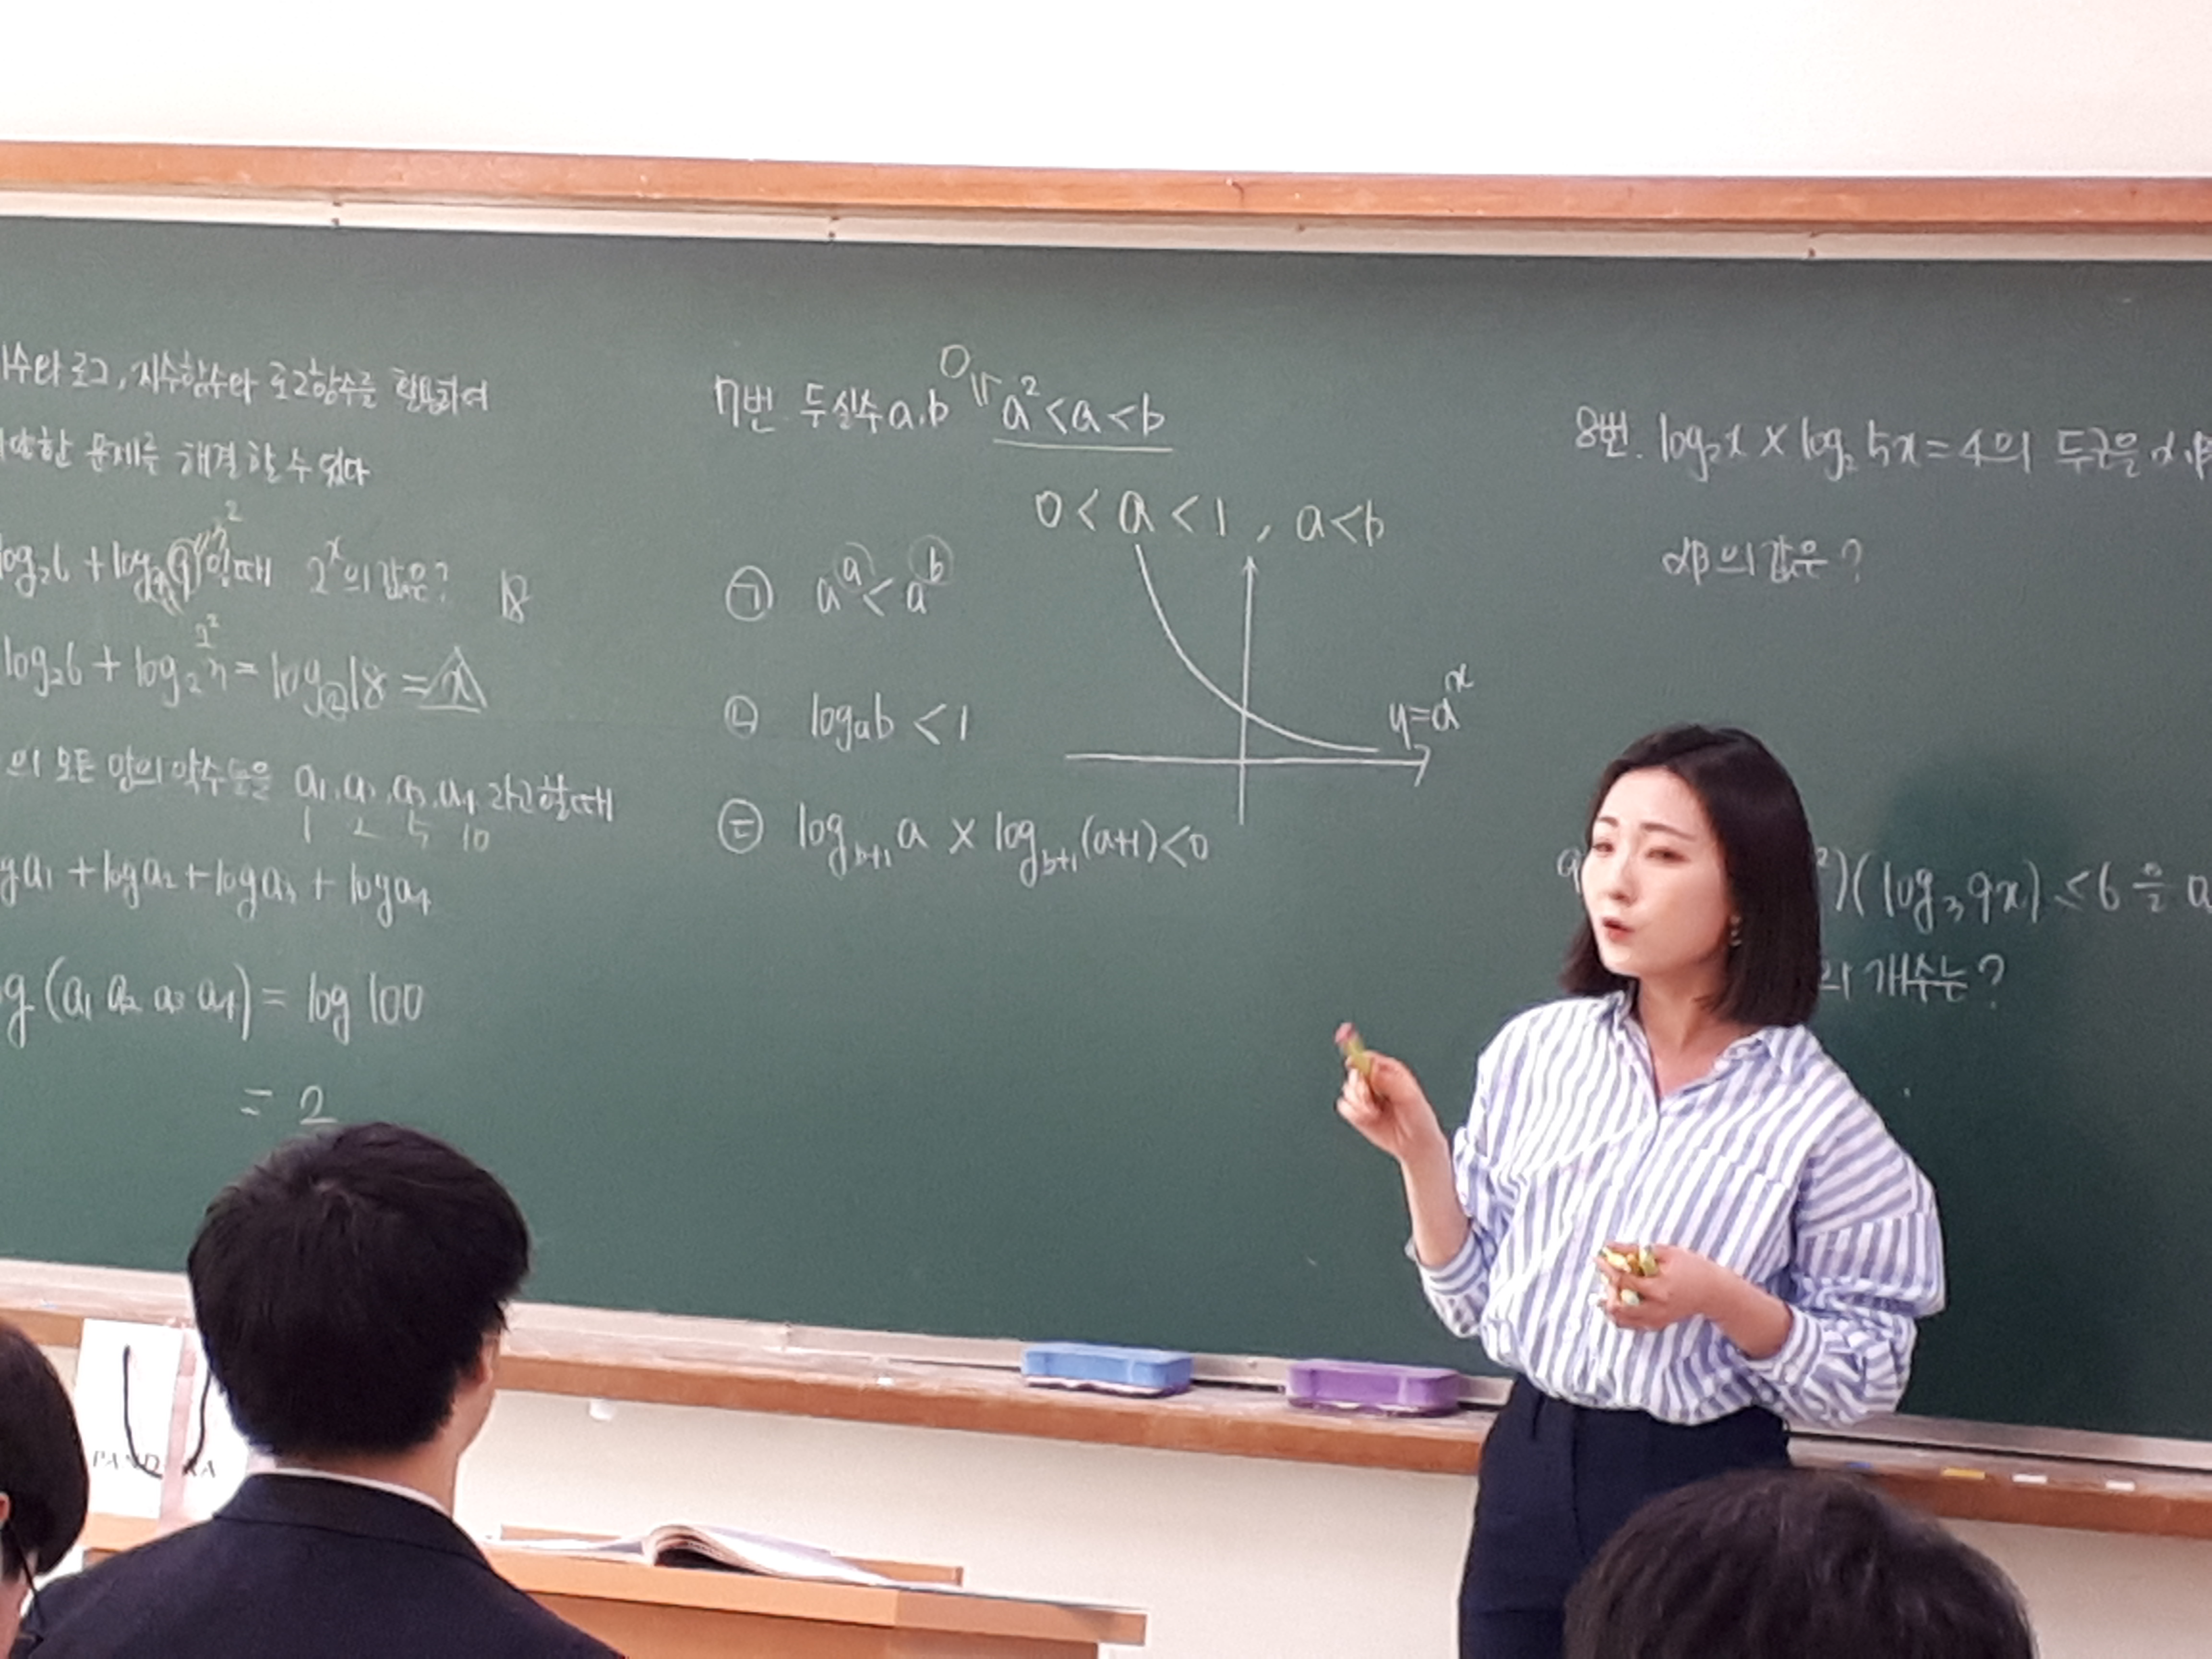 지수와 로그, 지수함수와 로그함수를 활용하여
한 문제를 해결할 수 있다
log₂6 + log 일때 2ˣ의 값은? 18
log₂6 + log₂3 = log₂18 = x
의 모든 양의 약수들을 a₁, a₂, a₃, a₄ 라고 할때
1 2 5 10
ga₁ + loga₂ + loga₃ + loga₄
g (a₁ a₂ a₃ a₄) = log 100
= 2
7번. 두 실수 a, b a² < a < b
0 < a < 1, a < b
㉠ aᵃ < aᵇ
y = aˣ
㉡ logₐb < 1
㉢ log_{b+1} a × log_{b+1} (a+1) < 0
8번. log₂x × log₂5x = 4의 두근을 α, β
αβ의 값은?
)(log₃9x) ≤ 6 을
의 개수는?
PANDORA